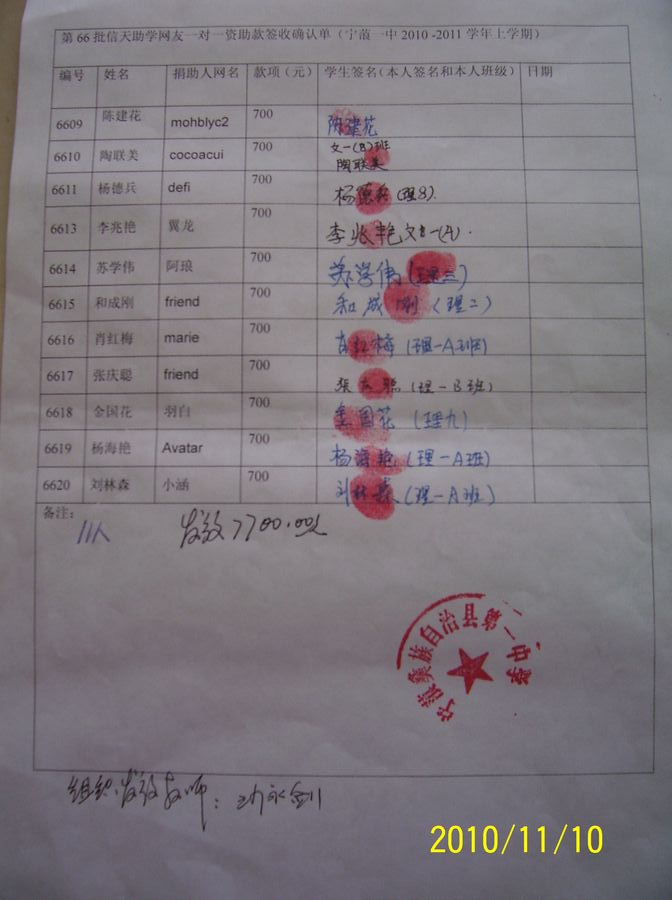 第 66 批信天助学网友一对一资助款签收确认单（宁蒗一中 2010 -2011 学年上学期）
编号 姓名 捐助人网名 款项（元） 学生签名（本人签名和本人班级） 日期
6609 陈建花 mohblyc2 700 陈建花
6610 陶联美 cocoacui 700 文一(B)班 陶联美
6611 杨德兵 defi 700 杨德兵(理8).
6613 李兆艳 翼龙 700 李兆艳
6614 苏学伟 阿琅 700 苏学伟(理三)
6615 和成刚 friend 700 和成刚(理二)
6616 肖红梅 marie 700 肖红梅(理一A班)
6617 张庆聪 friend 700 张庆聪(理一B班)
6618 金国花 羽白 700 金国花(理九)
6619 杨海艳 Avatar 700 杨海艳(理一A班)
6620 刘林森 小涵 700 刘林森(理一A班)
备注:
11人 发放7700.00元
宁蒗彝族自治县第一中学
组织发放教师：
2010/11/10